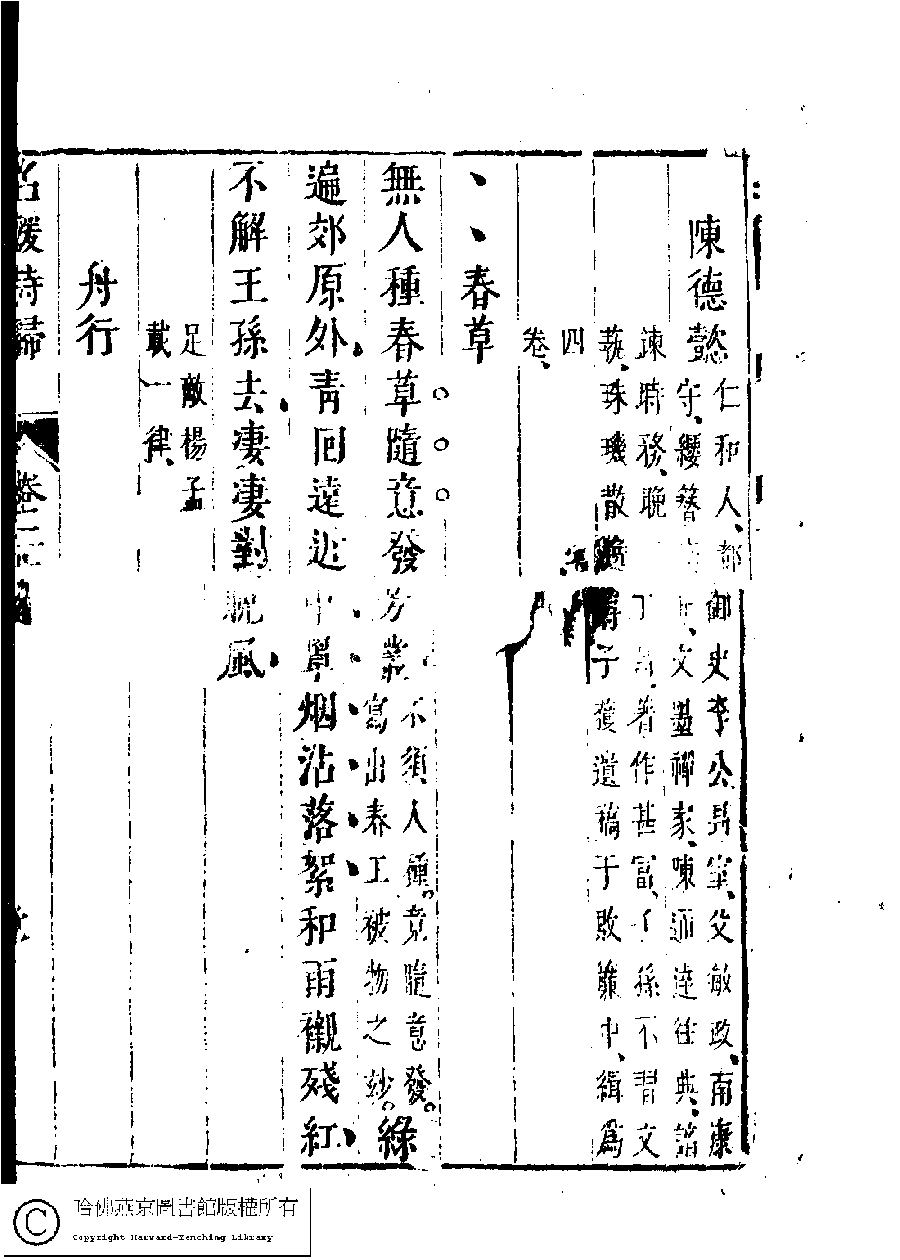 陳德懿
仁和人、都御史李公昂室、父敏政、南康
守、纓簪文墨禪家、陳通達往典、諳
諫時務、晚著作甚富、子孫不習文
執、珠璣散子獲遺稿于敗簏中、緝爲
四
卷、
春草
無人種春草隨意發芳叢
不須人種。竟隨意發。
寫出春工被物之妙。
綠
遍郊原外青回遠近中
烟沾落絮和雨襯殘紅
不解王孫去凄凄對晚風
足敵楊孟
載一律、
舟行
名媛詩歸
卷二
哈佛燕京圖書館版權所有
Copyright Harvard-Yenching Library